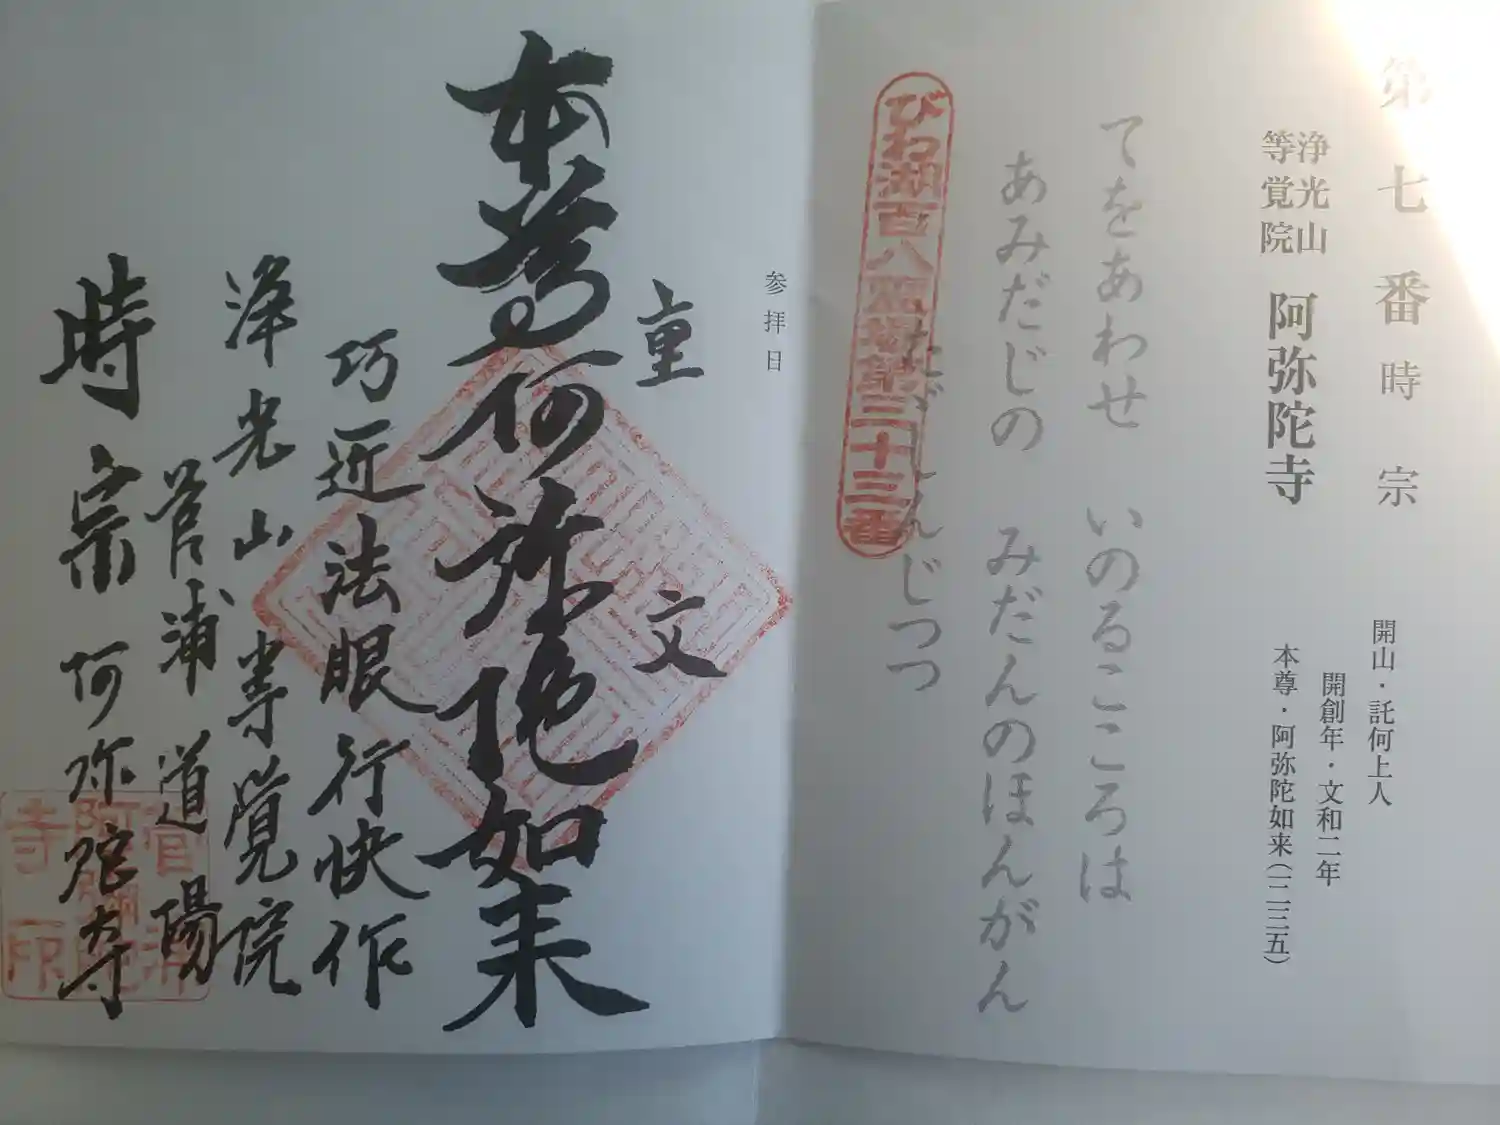 第七番時宗
開山・託何上人
浄光山
等覚院
阿弥陀寺
開創年・文和二年
本尊・阿弥陀如来(一二三五)
てをあわせ いのるこころは
あみだじの みだんのほんがん
たがしんじつつ
びわ湖百八霊場第三十三番
参拝日
重文
本尊阿弥陀如来
巧匠法眼行快作
浄光山等覺院
菅浦道場
時宗阿弥陀寺
菅浦
阿彌陀
寺印